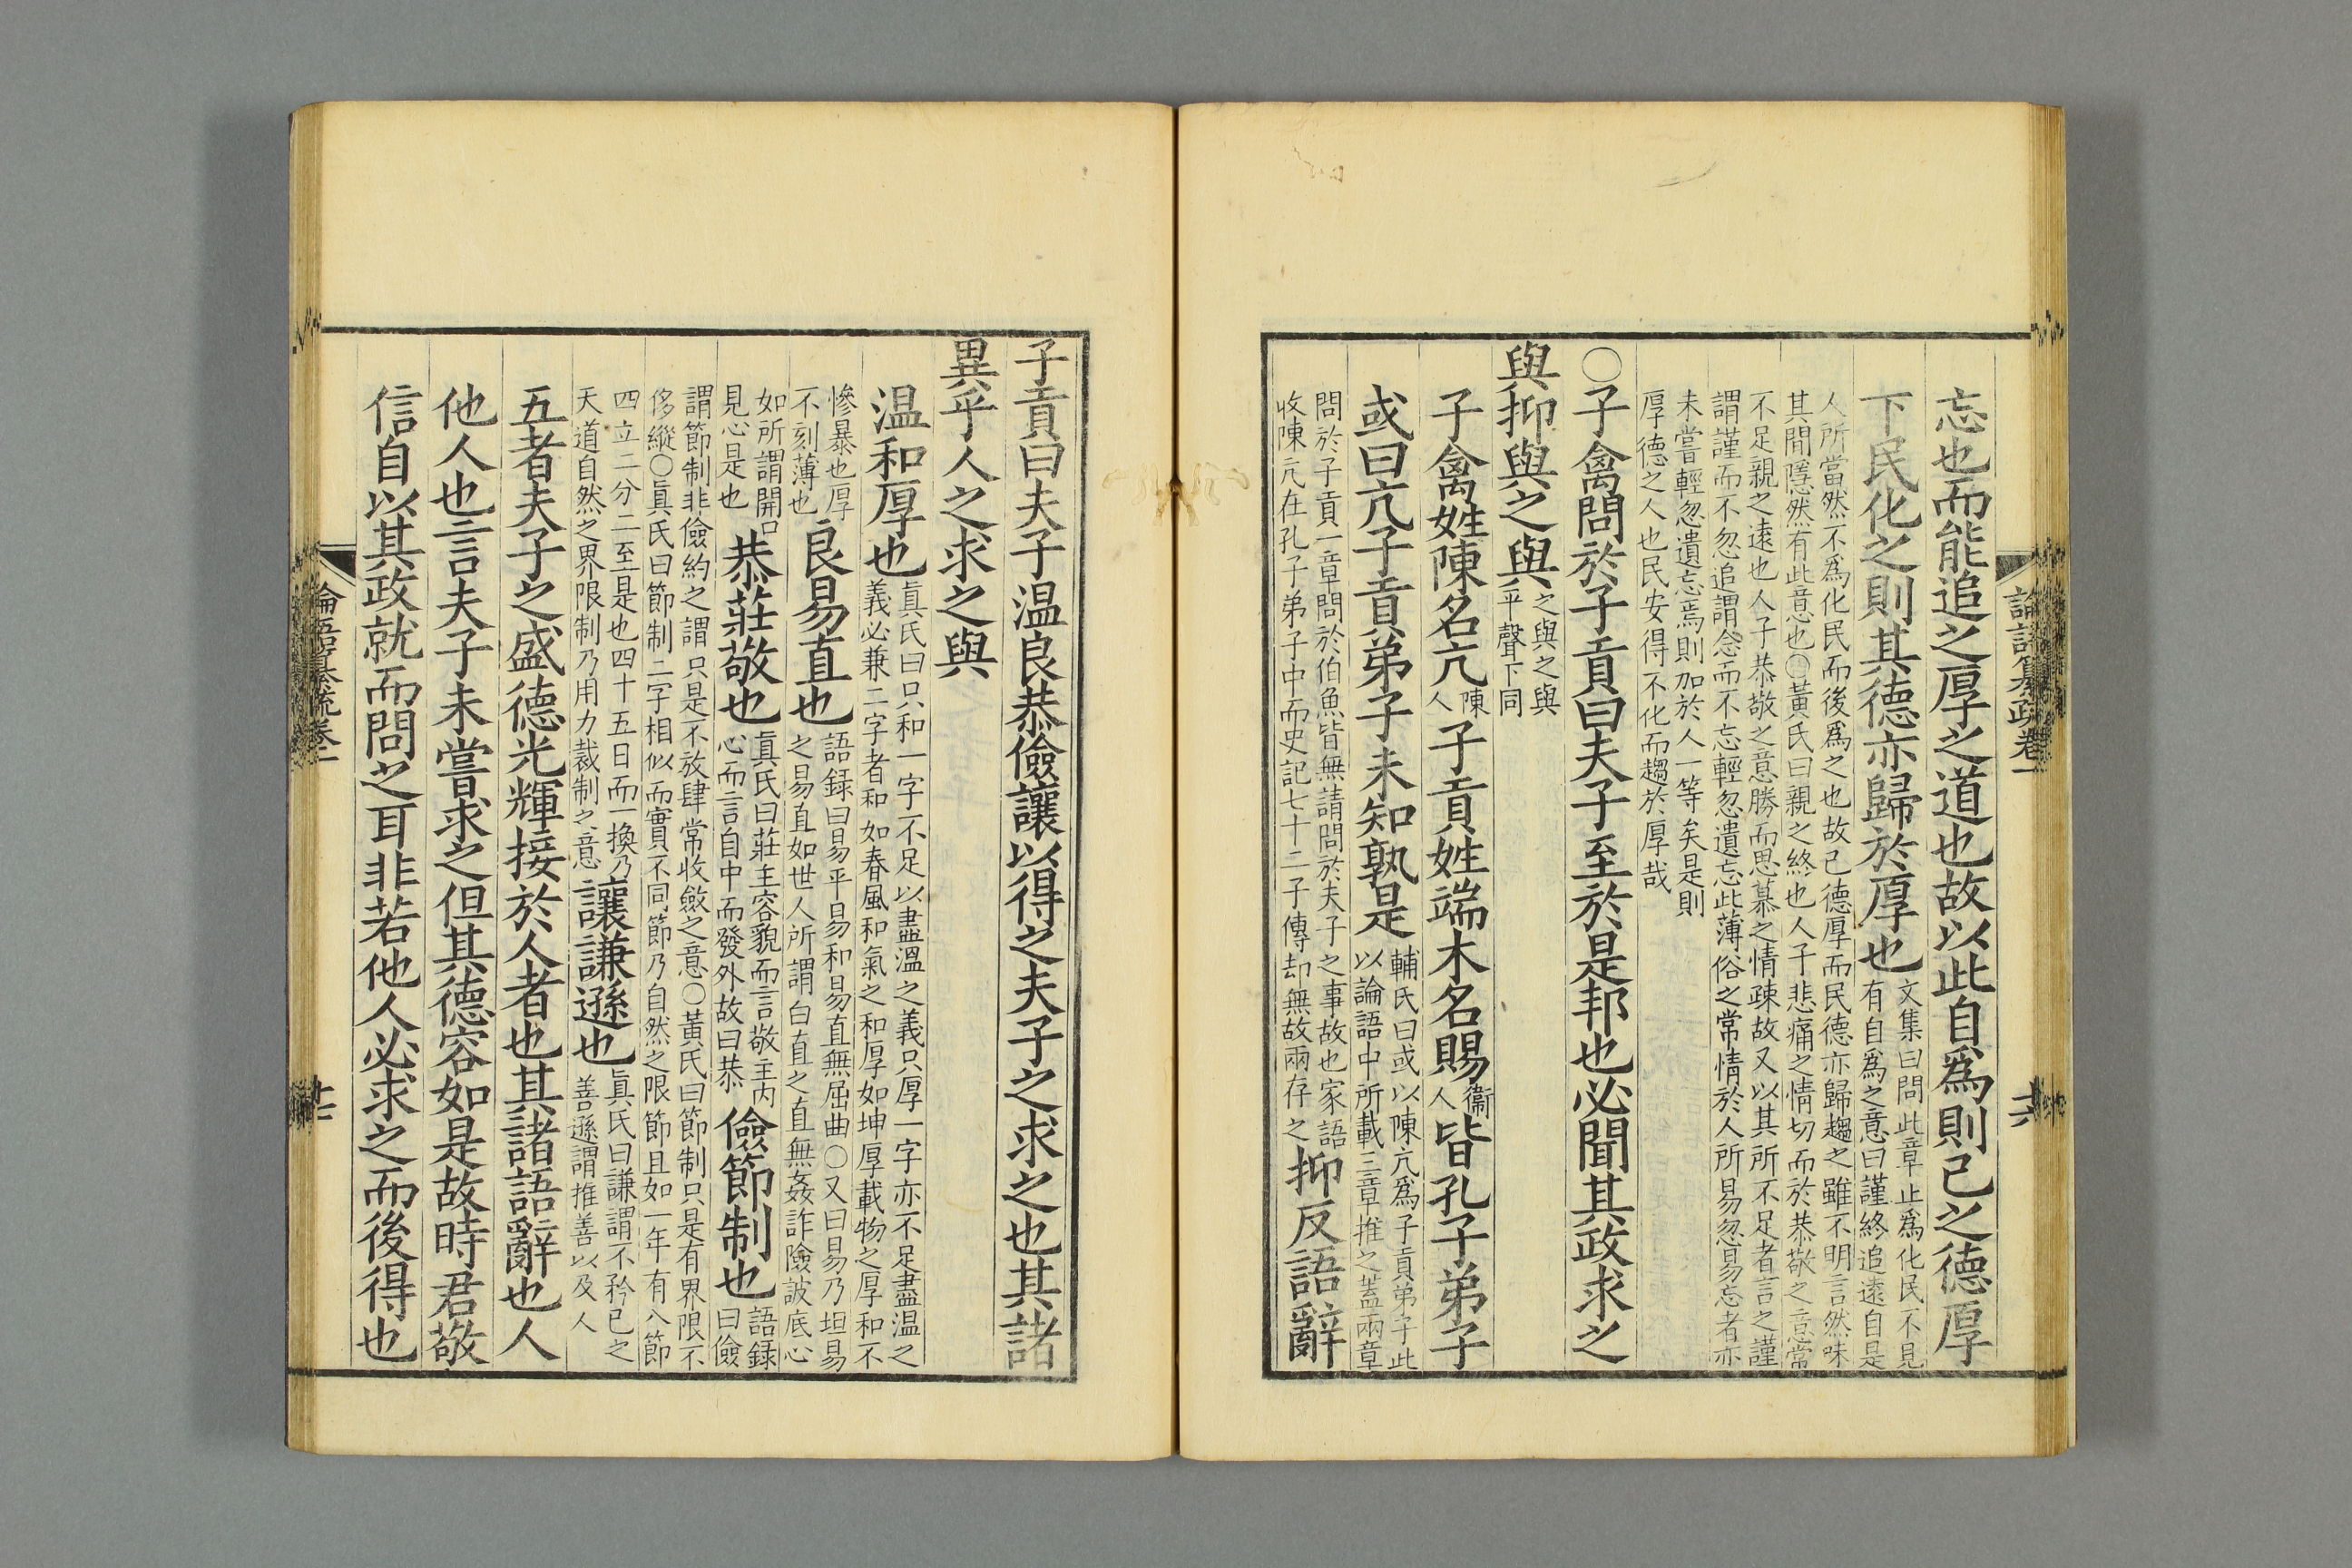 忘也而能追之厚之道也故以此自爲則己之德厚
下民化之則其德亦歸於厚也
文集曰問此章止爲化民不見
有自爲之意曰謹終追遠自是
人所當然不爲化民而後爲之也故己德厚而民德亦歸趨之雖不明言然味
其間隱然有此意也○黃氏曰親之終也人子悲痛之情切而於恭敬之意常
不足親之遠也人子恭敬之意勝而思慕之情疎故又以其所不足者言之謹
謂謹而不忽追謂念而不忘輕忽遺忘此薄俗之常情於人所易忽易忘者亦
未嘗輕忽遺忘焉則加於人一等矣是則
厚德之人也民安得不化而趨於厚哉
○子禽問於子貢曰夫子至於是邦也必聞其政求之
與抑與之與
之與之與
平聲下同
子禽姓陳名亢
陳
人
子貢姓端木名賜
衞
人
皆孔子弟子
或曰亢子貢弟子未知孰是
輔氏曰或以陳亢爲子貢弟子此
以論語中所載三章推之蓋兩章
問於子貢一章問於伯魚皆無請問於夫子之事故也家語
收陳亢在孔子弟子中而史記七十二子傳却無故兩存之
抑反語辭
論語纂疏卷一
子貢曰夫子温良恭儉讓以得之夫子之求之也其諸
異乎人之求之與
温和厚也
眞氏曰只和一字不足以盡溫之義只厚一字亦不足盡温之
義必兼二字者和如春風和氣之和厚如坤厚載物之厚和不
慘暴也厚
不刻薄也
良易直也
語録曰易平易和易直無屈曲○又曰易乃坦易
之易直如世人所謂白直之直無姦詐險詖底心
如所謂開口
見心是也
恭莊敬也
眞氏曰莊主容貌而言敬主内
心而言自中而發外故曰恭
儉節制也
語録
曰儉
謂節制非儉約之謂只是不放肆常收斂之意○黃氏曰節制只是有界限不
侈縱○眞氏曰節制二字相似而實不同節乃自然之限節且如一年有八節
四立二分二至是也四十五日而一換乃
天道自然之界限制乃用力裁制之意
讓謙遜也
眞氏曰謙謂不矜己之
善遜謂推善以及人
五者夫子之盛德光輝接於人者也其諸語辭也人
他人也言夫子未嘗求之但其德容如是故時君敬
信自以其政就而問之耳非若他人必求之而後得也